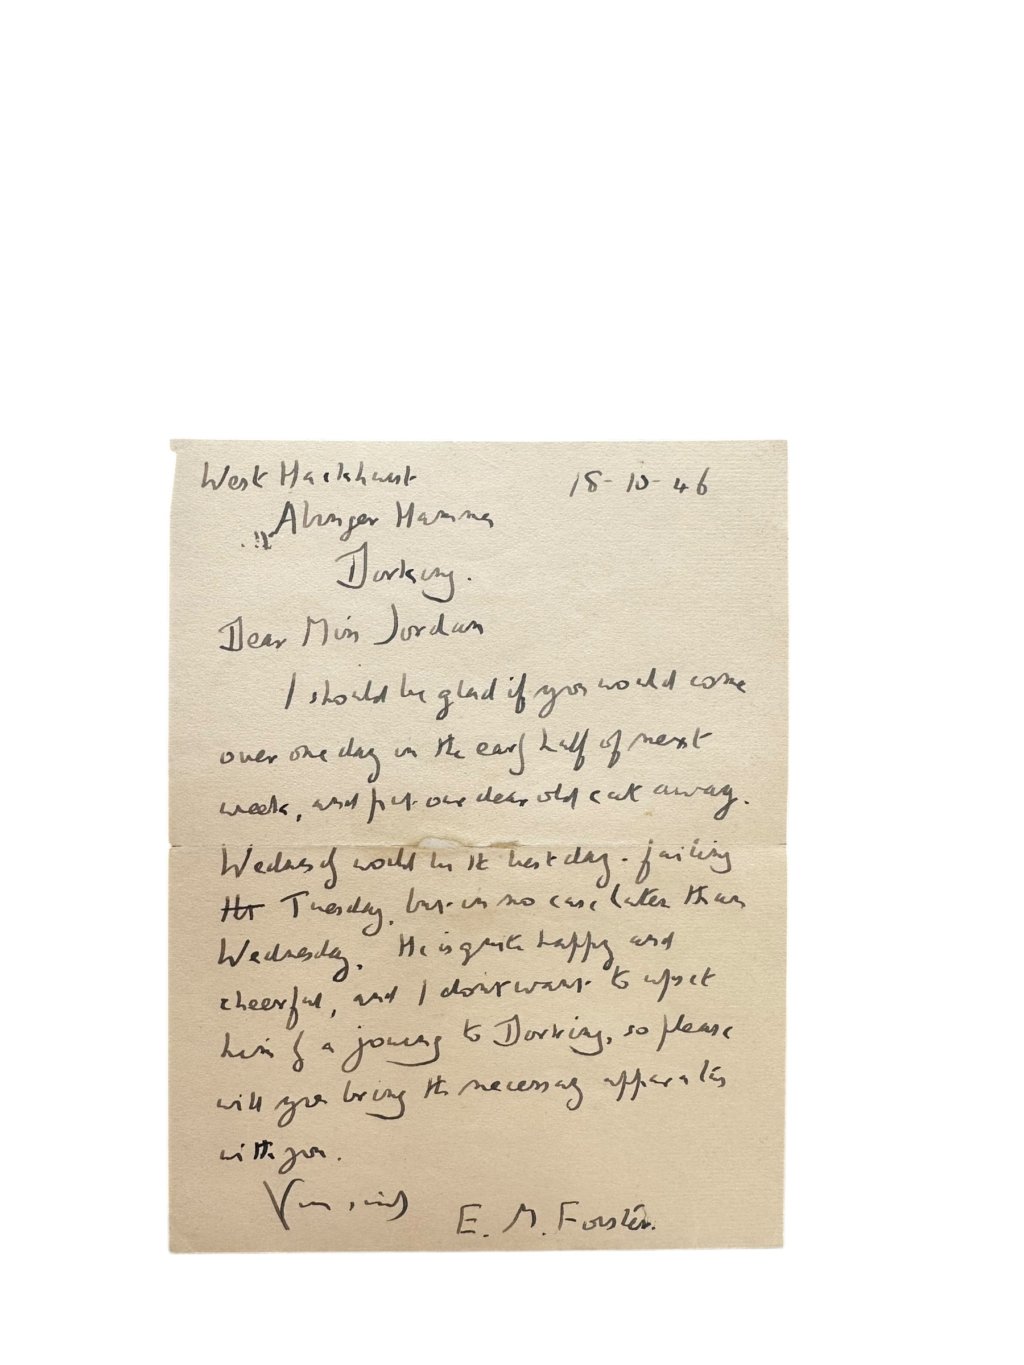 West Hackhurst 18-10-46
Abinger Hammer
Dorking.
Dear Miss Jordan
I should be glad if you would come
over one day in the early half of next
week, and put our dear old cat away.
Wednesday would be the best day. failing
tht Tuesday, but in no case later than
Wednesday. He is quite happy and
cheerful, and I don't want to upset
him by a journey to Dorking, so please
will you bring the necessary apparatus
with you.
Yours sincerely
E. M. Forster.